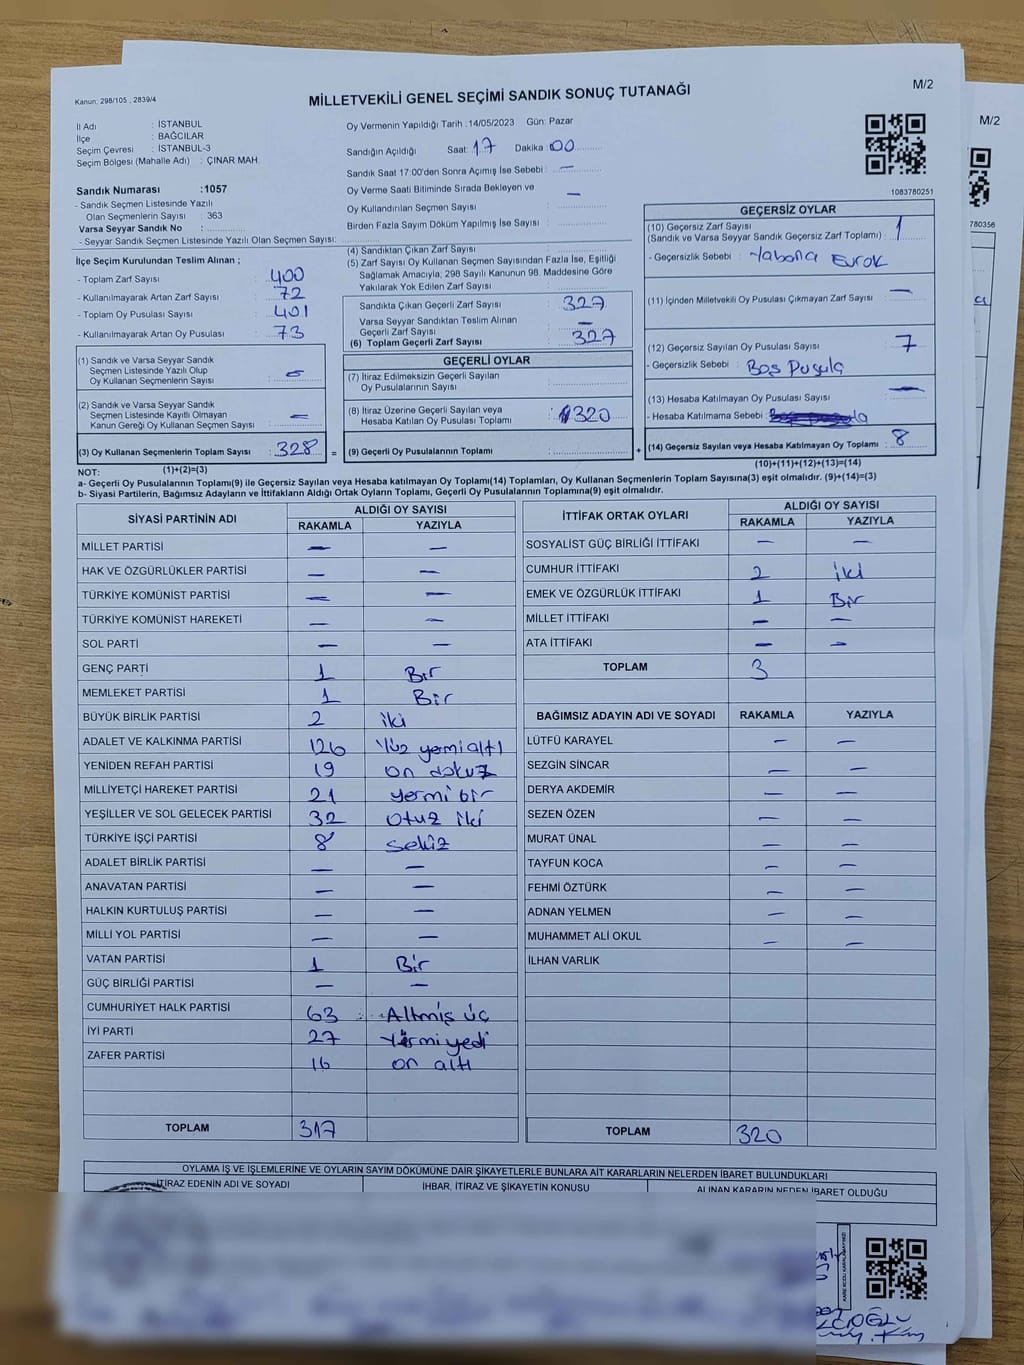 Kanun: 298/105 , 2839/4
MİLLETVEKİLİ GENEL SEÇİMİ SANDIK SONUÇ TUTANAĞI
M/2
İl Adı : İSTANBUL
İlçe : BAĞCILAR
Seçim Çevresi : İSTANBUL-3
Seçim Bölgesi (Mahalle Adı) : ÇINAR MAH.
Sandık Numarası :1057
- Sandık Seçmen Listesinde Yazılı
Olan Seçmenlerin Sayısı : 363
Varsa Seyyar Sandık No :
- Seyyar Sandık Seçmen Listesinde Yazılı Olan Seçmen Sayısı:
Oy Vermenin Yapıldığı Tarih :14/05/2023 Gün: Pazar
Sandığın Açıldığı Saat: 17 Dakika :00
Sandık Saat 17:00'den Sonra Açımış İse Sebebi : —
Oy Verme Saati Bitiminde Sırada Bekleyen ve —
Oy Kullandırılan Seçmen Sayısı :
Birden Fazla Sayım Döküm Yapılmış İse Sayısı :
1083780251
İlçe Seçim Kurulundan Teslim Alınan ;
- Toplam Zarf Sayısı : 400
- Kullanılmayarak Artan Zarf Sayısı : 72
- Toplam Oy Pusulası Sayısı : 401
- Kullanılmayarak Artan Oy Pusulası : 73
(1) Sandık ve Varsa Seyyar Sandık
Seçmen Listesinde Yazılı Olup
Oy Kullanan Seçmenlerin Sayısı :
(2) Sandık ve Varsa Seyyar Sandık
Seçmen Listesinde Kayıtlı Olmayan
Kanun Gereği Oy Kullanan Seçmen Sayısı : —
(3) Oy Kullanan Seçmenlerin Toplam Sayısı : 328 =
(1)+(2)=(3)
(4) Sandıktan Çıkan Zarf Sayısı :
(5) Zarf Sayısı Oy Kullanan Seçmen Sayısından Fazla İse, Eşitliği
Sağlamak Amacıyla; 298 Sayılı Kanunun 98. Maddesine Göre
Yakılarak Yok Edilen Zarf Sayısı :
Sandıkta Çıkan Geçerli Zarf Sayısı : 327
Varsa Seyyar Sandıktan Teslim Alınan
Geçerli Zarf Sayısı : —
(6) Toplam Geçerli Zarf Sayısı : 327
GEÇERLİ OYLAR
(7) İtiraz Edilmeksizin Geçerli Sayılan
Oy Pusulalarının Sayısı :
(8) İtiraz Üzerine Geçerli Sayılan veya
Hesaba Katılan Oy Pusulası Toplamı : 320
(9) Geçerli Oy Pusulalarının Toplamı : +
GEÇERSİZ OYLAR
(10) Geçersiz Zarf Sayısı
(Sandık ve Varsa Seyyar Sandık Geçersiz Zarf Toplamı) : 1
- Geçersizlik Sebebi :
(11) İçinden Milletvekili Oy Pusulası Çıkmayan Zarf Sayısı : —
(12) Geçersiz Sayılan Oy Pusulası Sayısı : 7
- Geçersizlik Sebebi : Boş Pusula
(13) Hesaba Katılmayan Oy Pusulası Sayısı : —
- Hesaba Katılmama Sebebi :
(14) Geçersiz Sayılan veya Hesaba Katılmayan Oy Toplamı : 8
(10)+(11)+(12)+(13)=(14)
NOT:
a- Geçerli Oy Pusulalarının Toplamı(9) ile Geçersiz Sayılan veya Hesaba katılmayan Oy Toplamı(14) Toplamları, Oy Kullanan Seçmenlerin Toplam Sayısına(3) eşit olmalıdır. (9)+(14)=(3)
b- Siyasi Partilerin, Bağımsız Adayların ve İttifakların Aldığı Ortak Oyların Toplamı, Geçerli Oy Pusulalarının Toplamına(9) eşit olmalıdır.
SİYASİ PARTİNİN ADI ALDIĞI OY SAYISI
RAKAMLA YAZIYLA
MİLLET PARTİSİ — —
HAK VE ÖZGÜRLÜKLER PARTİSİ — —
TÜRKİYE KOMÜNİST PARTİSİ — —
TÜRKİYE KOMÜNİST HAREKETİ — —
SOL PARTİ — —
GENÇ PARTİ 1 Bir
MEMLEKET PARTİSİ 1 Bir
BÜYÜK BİRLİK PARTİSİ 2 iki
ADALET VE KALKINMA PARTİSİ 126 Yüz yirmi altı
YENİDEN REFAH PARTİSİ 19 on dokuz
MİLLİYETÇİ HAREKET PARTİSİ 21 yirmi bir
YEŞİLLER VE SOL GELECEK PARTİSİ 32 otuz iki
TÜRKİYE İŞÇİ PARTİSİ 8 sekiz
ADALET BİRLİK PARTİSİ — —
ANAVATAN PARTİSİ — —
HALKIN KURTULUŞ PARTİSİ — —
MİLLİ YOL PARTİSİ — —
VATAN PARTİSİ 1 Bir
GÜÇ BİRLİĞİ PARTİSİ — —
CUMHURİYET HALK PARTİSİ 63 Altmış üç
İYİ PARTİ 27 Yirmi yedi
ZAFER PARTİSİ 16 on altı
TOPLAM 317
İTTİFAK ORTAK OYLARI ALDIĞI OY SAYISI
RAKAMLA YAZIYLA
SOSYALİST GÜÇ BİRLİĞİ İTTİFAKI — —
CUMHUR İTTİFAKI 2 iki
EMEK VE ÖZGÜRLÜK İTTİFAKI 1 Bir
MİLLET İTTİFAKI — —
ATA İTTİFAKI — —
TOPLAM 3
BAĞIMSIZ ADAYIN ADI VE SOYADI RAKAMLA YAZIYLA
LÜTFÜ KARAYEL — —
SEZGİN SİNCAR — —
DERYA AKDEMİR — —
SEZEN ÖZEN — —
MURAT ÜNAL — —
TAYFUN KOCA — —
FEHMİ ÖZTÜRK — —
ADNAN YELMEN — —
MUHAMMET ALİ OKUL — —
İLHAN VARLIK
TOPLAM 320
OYLAMA İŞ VE İŞLEMLERİNE VE OYLARIN SAYIM DÖKÜMÜNE DAİR ŞİKAYETLERLE BUNLARA AİT KARARLARIN NELERDEN İBARET BULUNDUKLARI
İTİRAZ EDENİN ADI VE SOYADI İHBAR, İTİRAZ VE ŞİKAYETİN KONUSU ALINAN KARARIN NEDEN İBARET OLDUĞU
M/2
780356